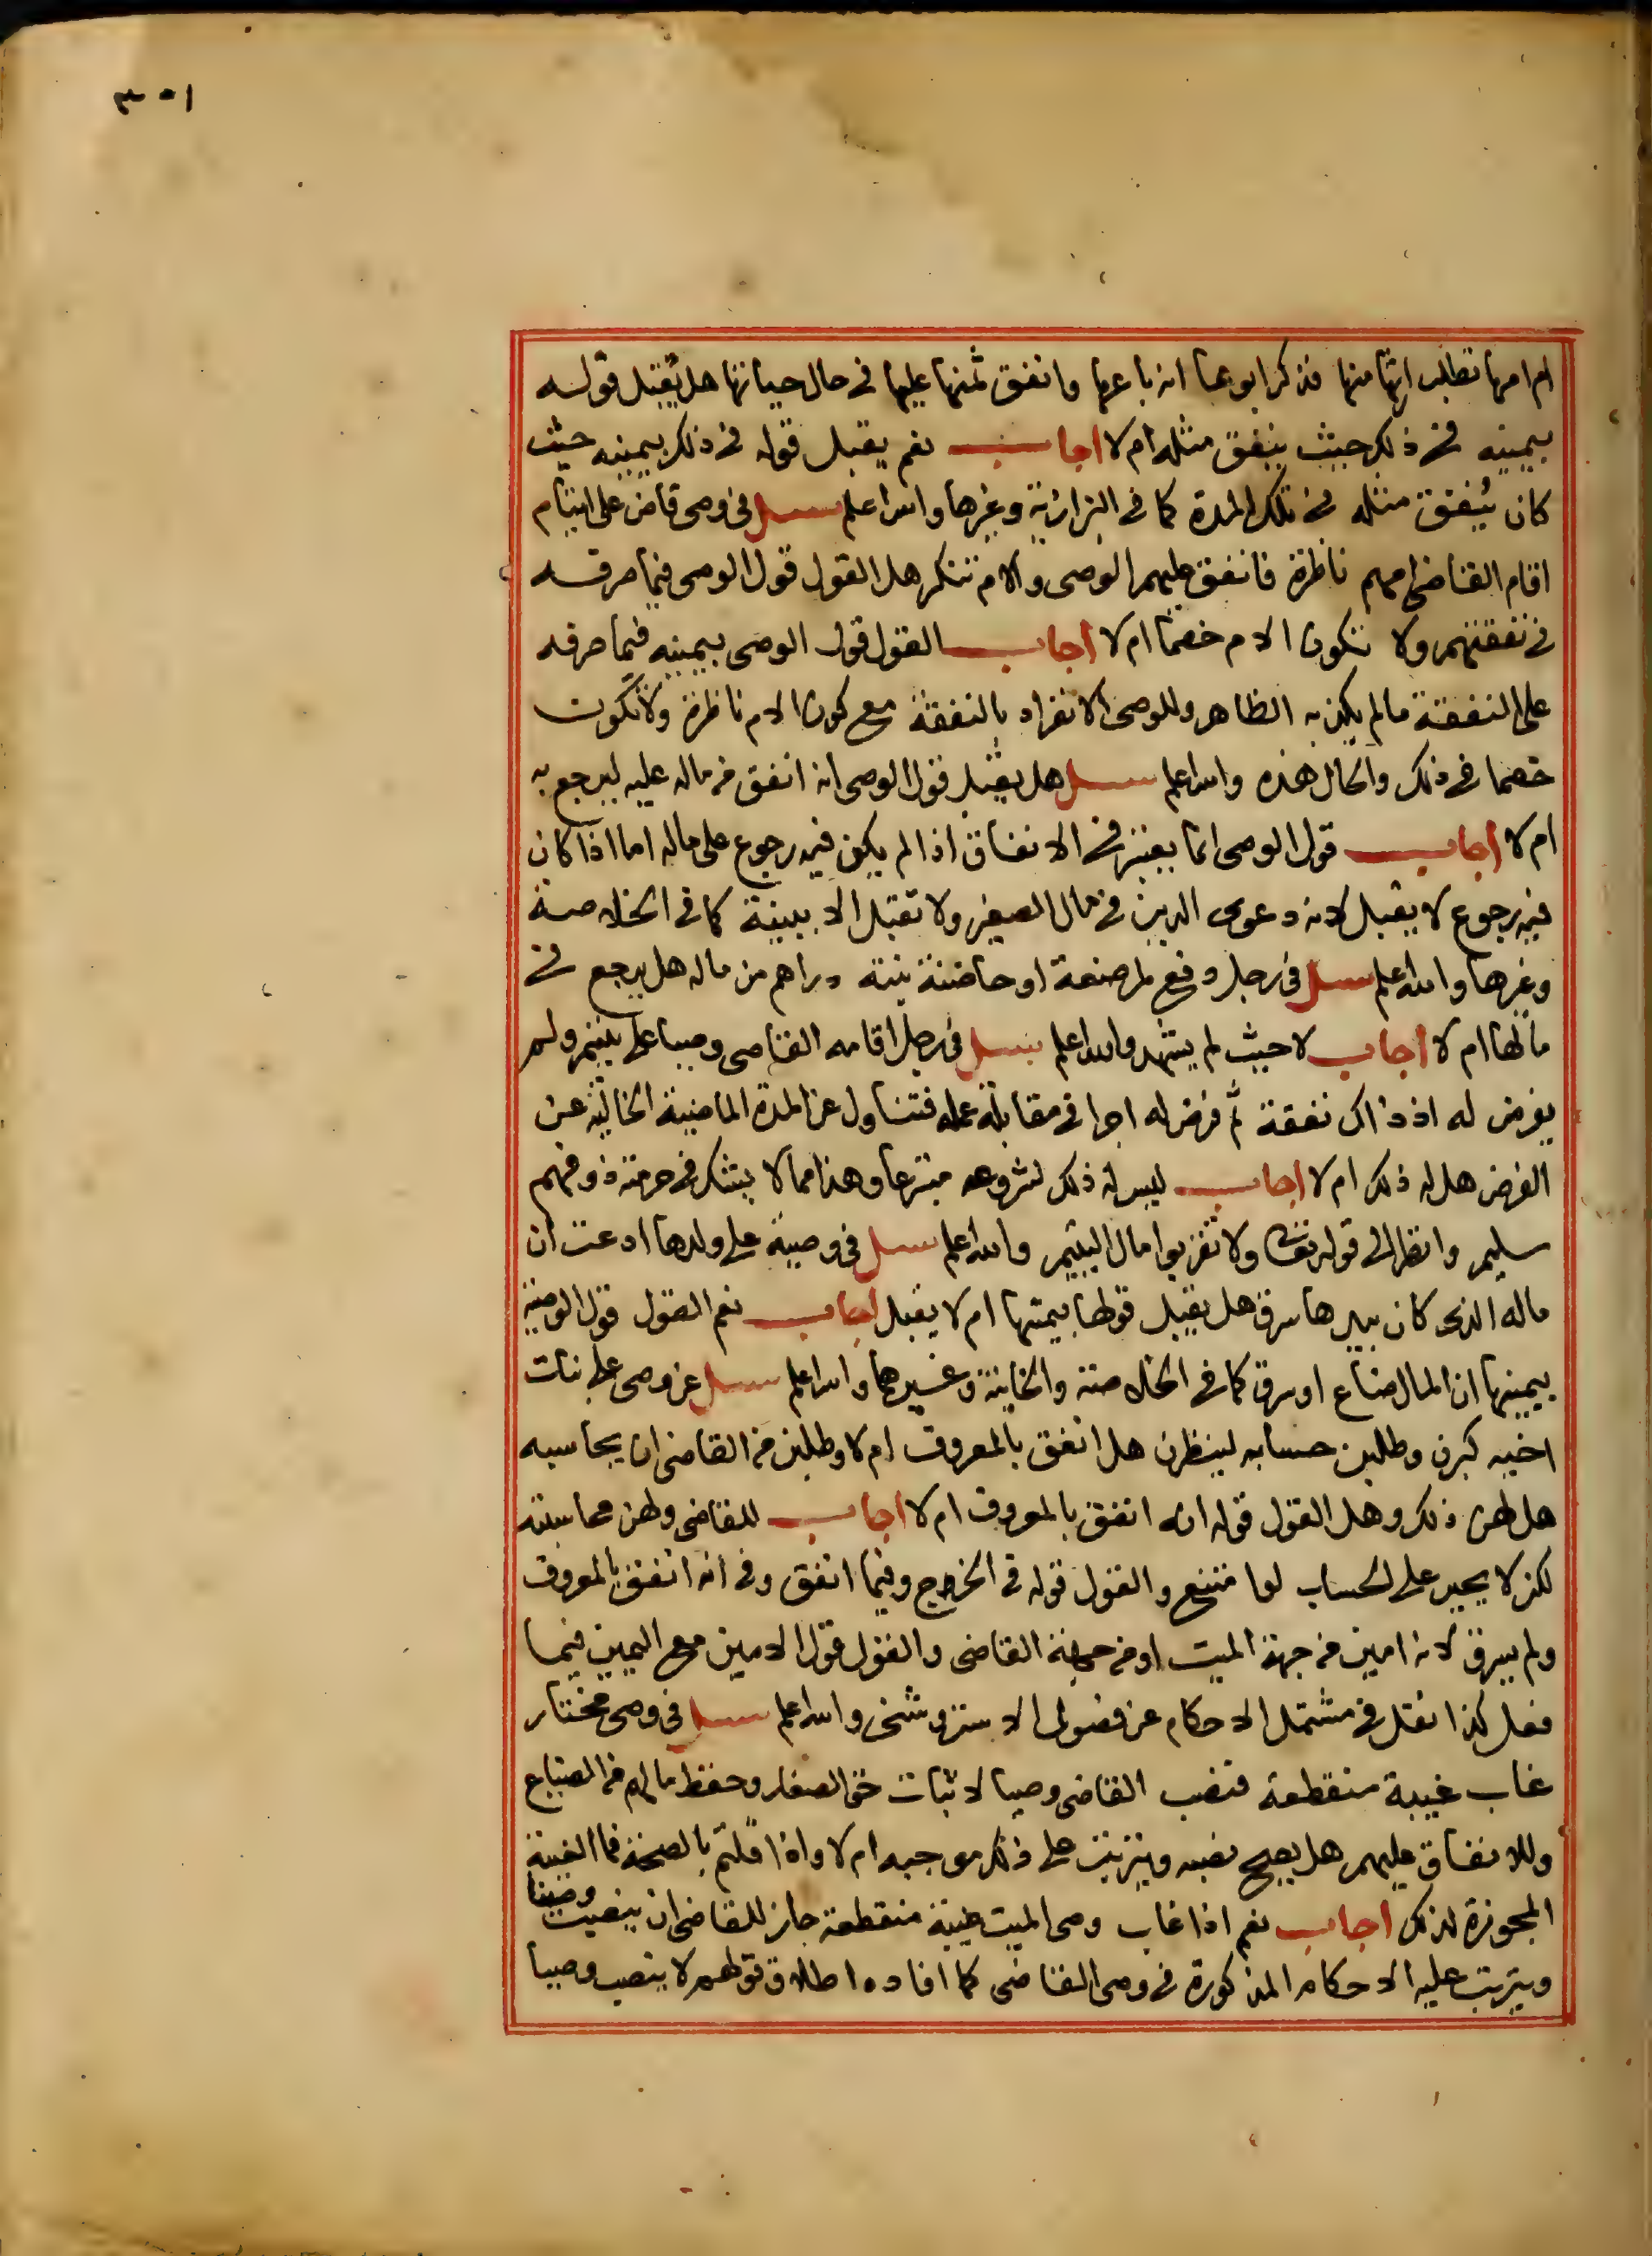 ٣٠١
ام امها تطلب ارثها منها فذكر ابوها انه باعها وانفق ثمنها عليها في حال حياتها هل يقبل قوله
بيمينه في ذلك حيث ينفق مثله ام لا اجاب نعم يقبل قوله في ذلك بيمينه حيث
كان ينفق مثله في تلك المدة كما في البزازية وغيرها والله اعلم سئل في وصي قاض على ايتام
اقام القاضي امهم ناظرة فانفق عليهم الوصي والام تنكر هل القول قول الوصي فيما صرفه
في نفقتهم ولا تكون الام خصما ام لا اجاب القول قول الوصي بيمينه فيما صرفه
على النفقة ما لم يكذبه الظاهر وللوصي الانفراد بالنفقة مع كون الام ناظرة ولا تكون
خصما في ذلك والحال هذه والله اعلم سئل هل يقبل قول الوصي انه انفق من ماله عليه ليرجع به
ام لا اجاب قول الوصي انما يعتبر في الانفاق اذا لم يكن فيه رجوع على ماله اما اذا كان
فيه رجوع لا يقبل لانه دعوى الدين في مال الصغير ولا تقبل الا ببينة كما في الخلاصة
وغيرها والله اعلم سئل في رجل دفع لمرضعة او حاضنة بنته دراهم من ماله هل يرجع في
مالها ام لا اجاب لا حيث لم يشهد والله اعلم سئل في رجل اقامه القاضي وصيا على يتيم ولم
يفرض له اذ ذاك نفقة ثم فرض له اجرا في مقابلة عمله فتناول عن المدة الماضية الخالية عن
الفرض هل له ذلك ام لا اجاب ليس له ذلك لشروعه متبرعا وهذا مما لا يشك في حرمته ذو فهم
سليم وانظر الى قوله تعالى ولا تقربوا مال اليتيم والله اعلم سئل في وصية على ولدها ادعت ان
ماله الذي كان بيدها سرق هل يقبل قولها بيمينها ام لا يقبل اجاب نعم القول قول الوصية
بيمينها ان المال ضاع او سرق كما في الخلاصة والخانية وغيرهما والله اعلم سئل عن وصي على بنات
اخيه كبرن وطلبن حسابه لينظرن هل انفق بالمعروف ام لا وطلبن من القاضي ان يحاسبه
هل لهن ذلك وهل القول قوله انه انفق بالمعروف ام لا اجاب للقاضي ولهن محاسبته
لكن لا يجبر على الحساب لو امتنع والقول قوله في الخروج وفيما انفق وفي انه انفق بالمعروف
ولم يسرف لانه امين من جهة الميت او من جهة القاضي والقول قول الامين مع اليمين فيما
فعل كذا نقل في مشتمل الاحكام عن فصولي الاستروشني والله اعلم سئل في وصي مختار
غاب غيبة منقطعة فنصب القاضي وصيا لاثبات حق الصغار وحفظ مالهم من الضياع
وللانفاق عليهم هل يصح نصبه ويترتب على ذلك موجبه ام لا واذا قلتم بالصحة فما الغيبة
المجوزة لذلك اجاب نعم اذا غاب وصي الميت غيبة منقطعة جاز للقاضي ان ينصب وصيا
ويترتب عليه الاحكام المذكورة في وصي القاضي كما افاده اطلاق قولهم لا ينصب وصيا